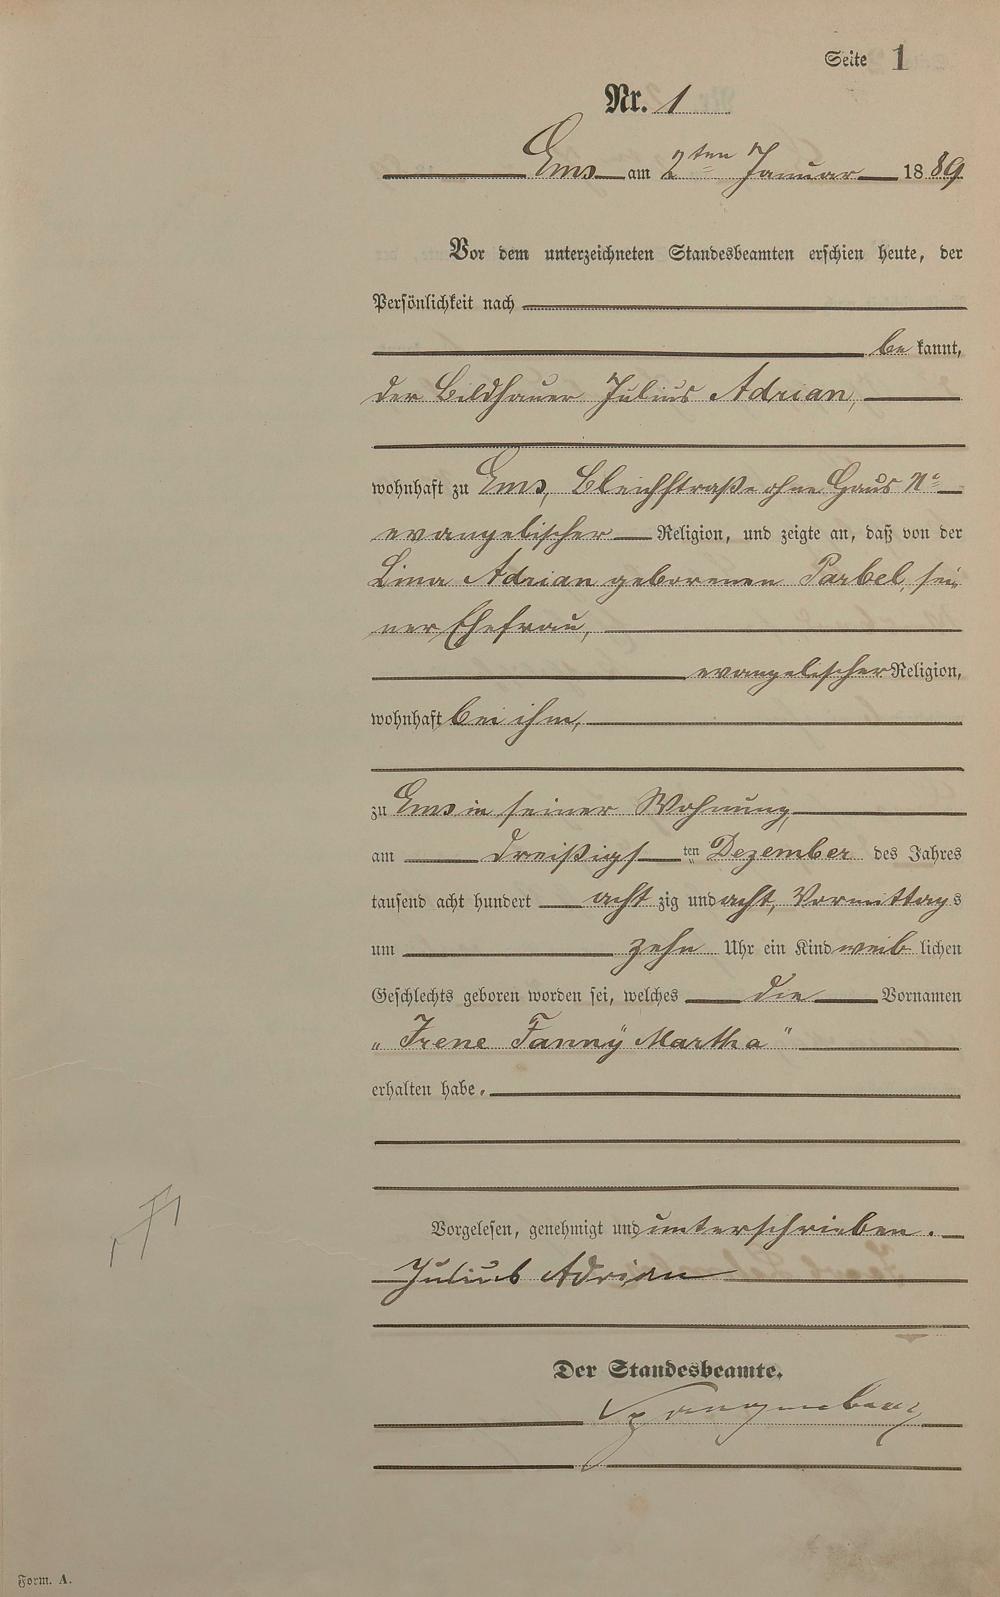 Seite 1
Nr. 1
Ems am 2ten Januar 1889
Vor dem unterzeichneten Standesbeamten erschien heute, der
Persönlichkeit nach
be kannt,
der Bildhauer Julius Adrian,
wohnhaft zu Ems, Bleichstraße ohne Haus No
evangelischer Religion, und zeigte an, daß von der
Lina Adrian geborenen Parbel, sei-
ner Ehefrau,
evangelischer Religion,
wohnhaft bei ihm,
zu Ems in seiner Wohnung,
am dreißigs ten Dezember des Jahres
tausend acht hundert acht zig und acht, Vormittags
um zehn Uhr ein Kind weib lichen
Geschlechts geboren worden sei, welches die Vornamen
„Irene Fanny Martha"
erhalten habe.
Vorgelesen, genehmigt und unterschrieben.
Julius Adrian
Der Standesbeamte.
Form. A.